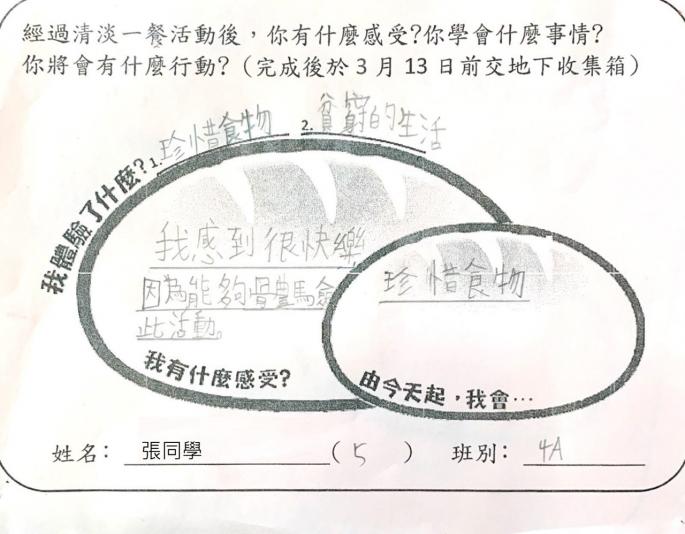 經過清淡一餐活動後，你有什麼感受?你學會什麼事情?
你將會有什麼行動?（完成後於 3 月 13 日前交地下收集箱）
我體驗了什麼? 1. 珍惜食物 2. 貧窮的生活
我感到很快樂
因為能夠體驗
此活動。
我有什麼感受?
珍惜食物
由今天起，我會…
姓名： 張同學 （ 5 ） 班別： 4A